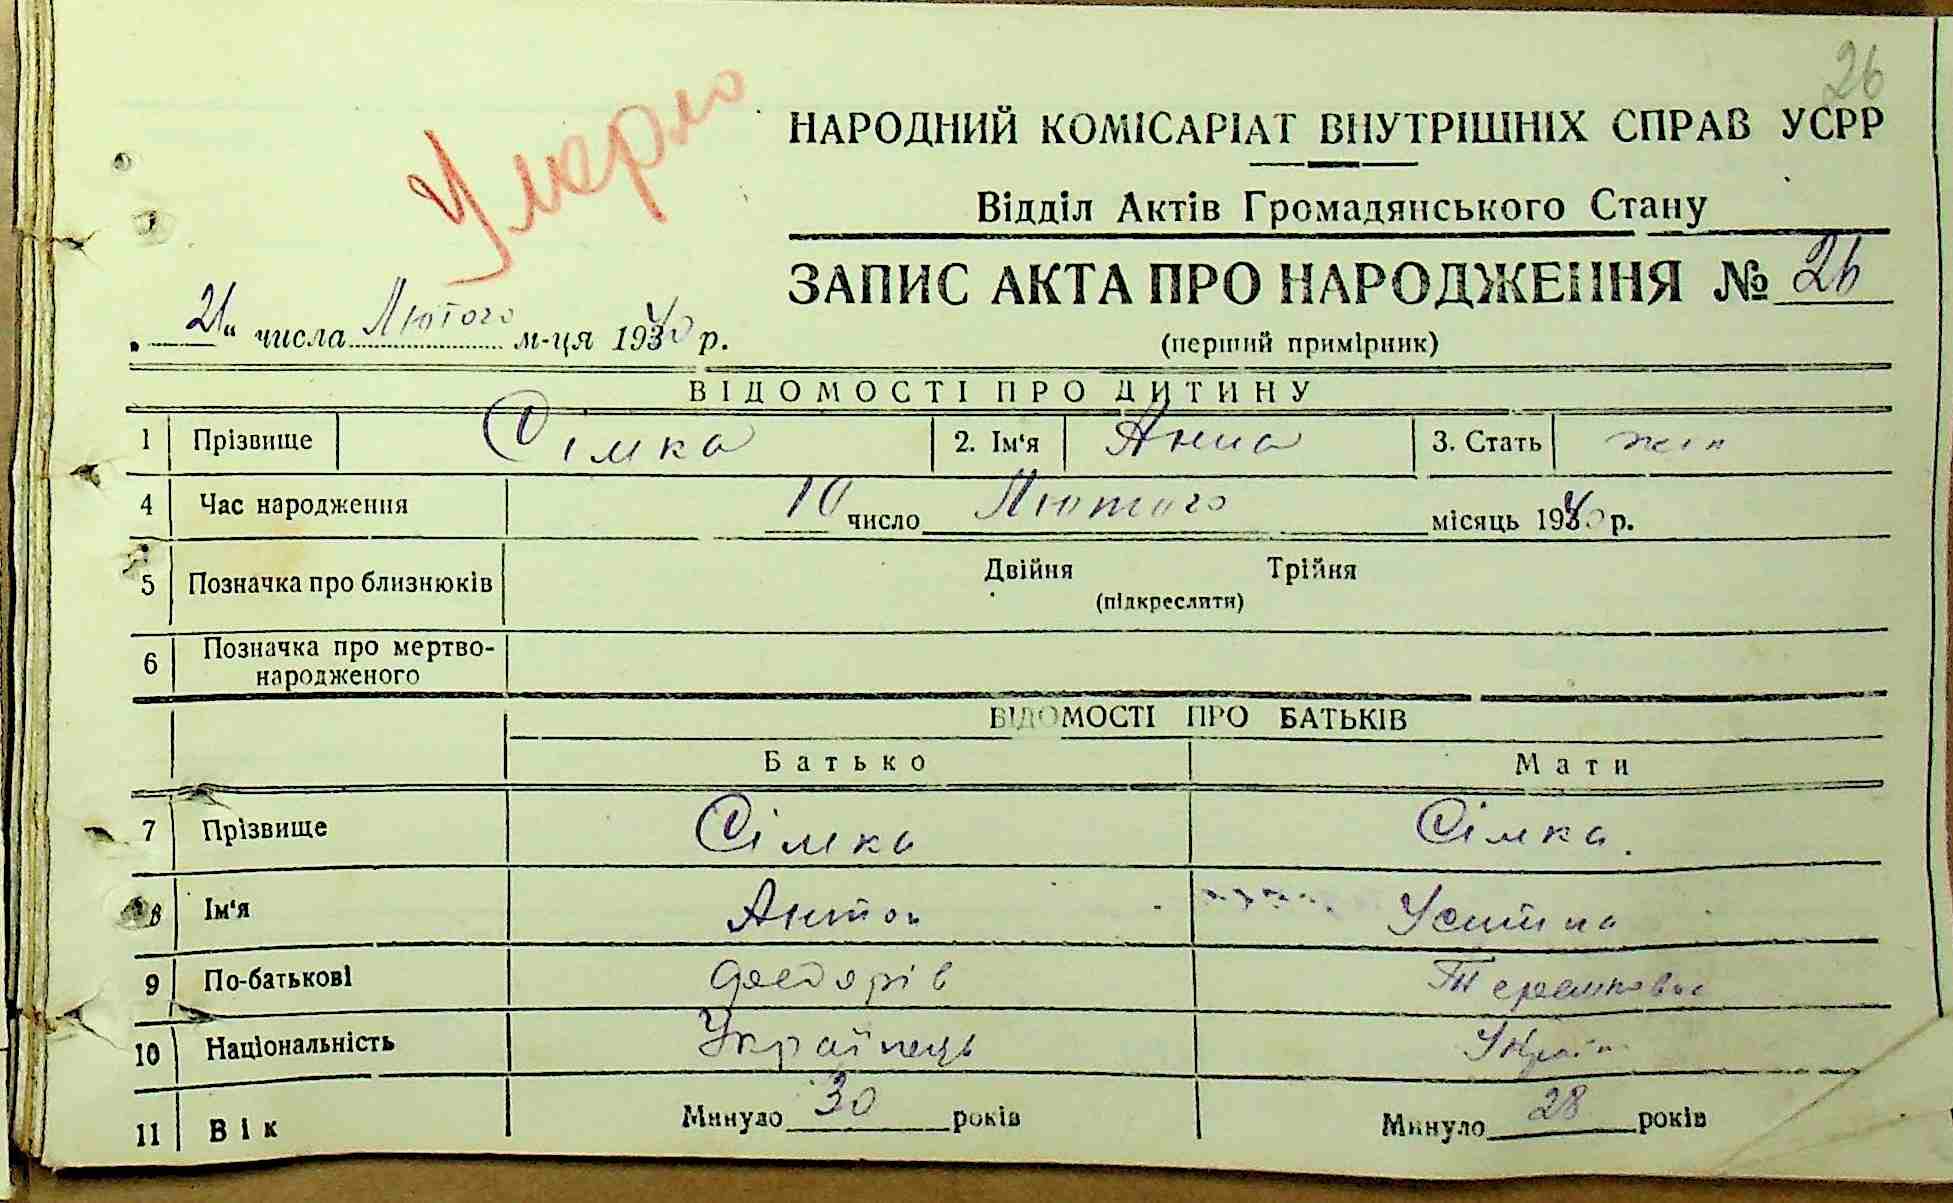 26
Умерло
НАРОДНИЙ КОМІСАРІАТ ВНУТРІШНІХ СПРАВ УСРР
Відділ Актів Громадянського Стану
ЗАПИС АКТА ПРО НАРОДЖЕННЯ № 26
(перший примірник)
„21“ числа Лютого м-ця 1940 р.
ВІДОМОСТІ ПРО ДИТИНУ
1 Прізвище Сімка 2. Ім'я Анна 3. Стать жін
4 Час народження 10 число Лютого місяць 1940 р.
5 Позначка про близнюків Двійня Трійня
(підкреслити)
6 Позначка про мертво-
народженого
ВІДОМОСТІ ПРО БАТЬКІВ
Батько Мати
7 Прізвище Сімка Сімка.
8 Ім'я Антон Устина
9 По-батькові Федорів
10 Національність Українець Україн
11 Вік Минуло 30 років Минуло 28 років